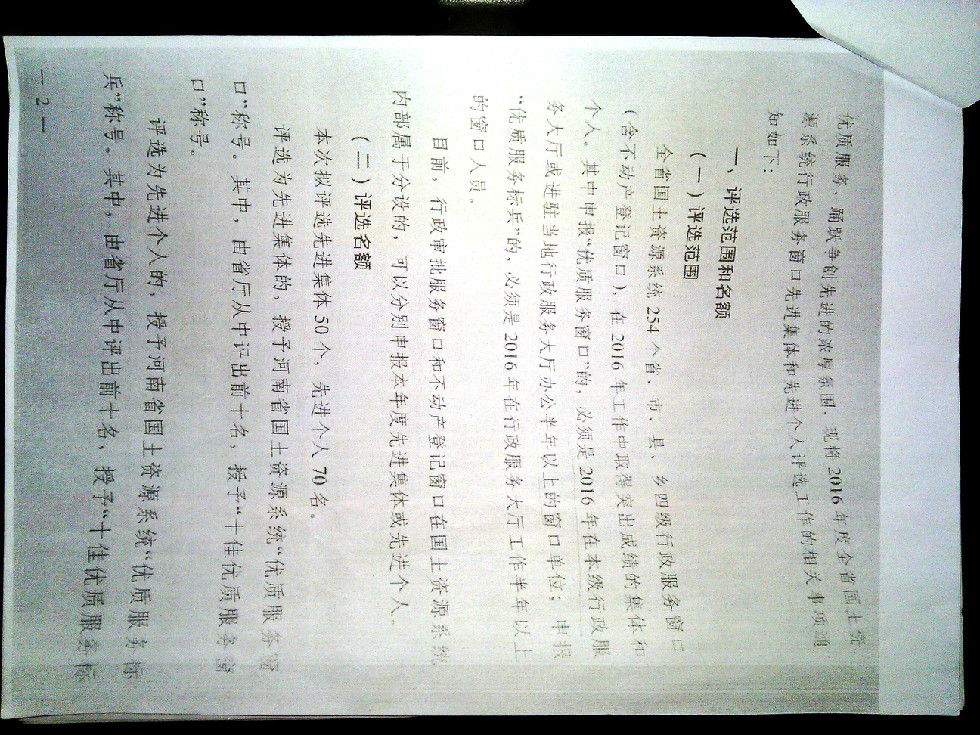 优质服务、踊跃争创先进的浓厚氛围，现将2016年度全省国土资
源系统行政服务窗口先进集体和先进个人评选工作的相关事项通
知如下：
一、评选范围和名额
（一）评选范围
全省国土资源系统254个省、市、县、乡四级行政服务窗口
（含不动产登记窗口），在2016年工作中取得突出成绩的集体和
个人。其中申报“优质服务窗口”的，必须是2016年在本级行政服
务大厅或进驻当地行政服务大厅办公半年以上的窗口单位；申报
“优质服务标兵”的，必须是2016年在行政服务大厅工作半年以上
的窗口人员。
目前，行政审批服务窗口和不动产登记窗口在国土资源系统
内部属于分设的，可以分别申报本年度先进集体或先进个人。
（二）评选名额
本次拟评选先进集体50个，先进个人70名。
评选为先进集体的，授予河南省国土资源系统“优质服务窗
口”称号。其中，由省厅从中评出前十名，授予“十佳优质服务窗
口”称号。
评选为先进个人的，授予河南省国土资源系统“优质服务标
兵”称号。其中，由省厅从中评出前十名，授予“十佳优质服务标
— 2 —